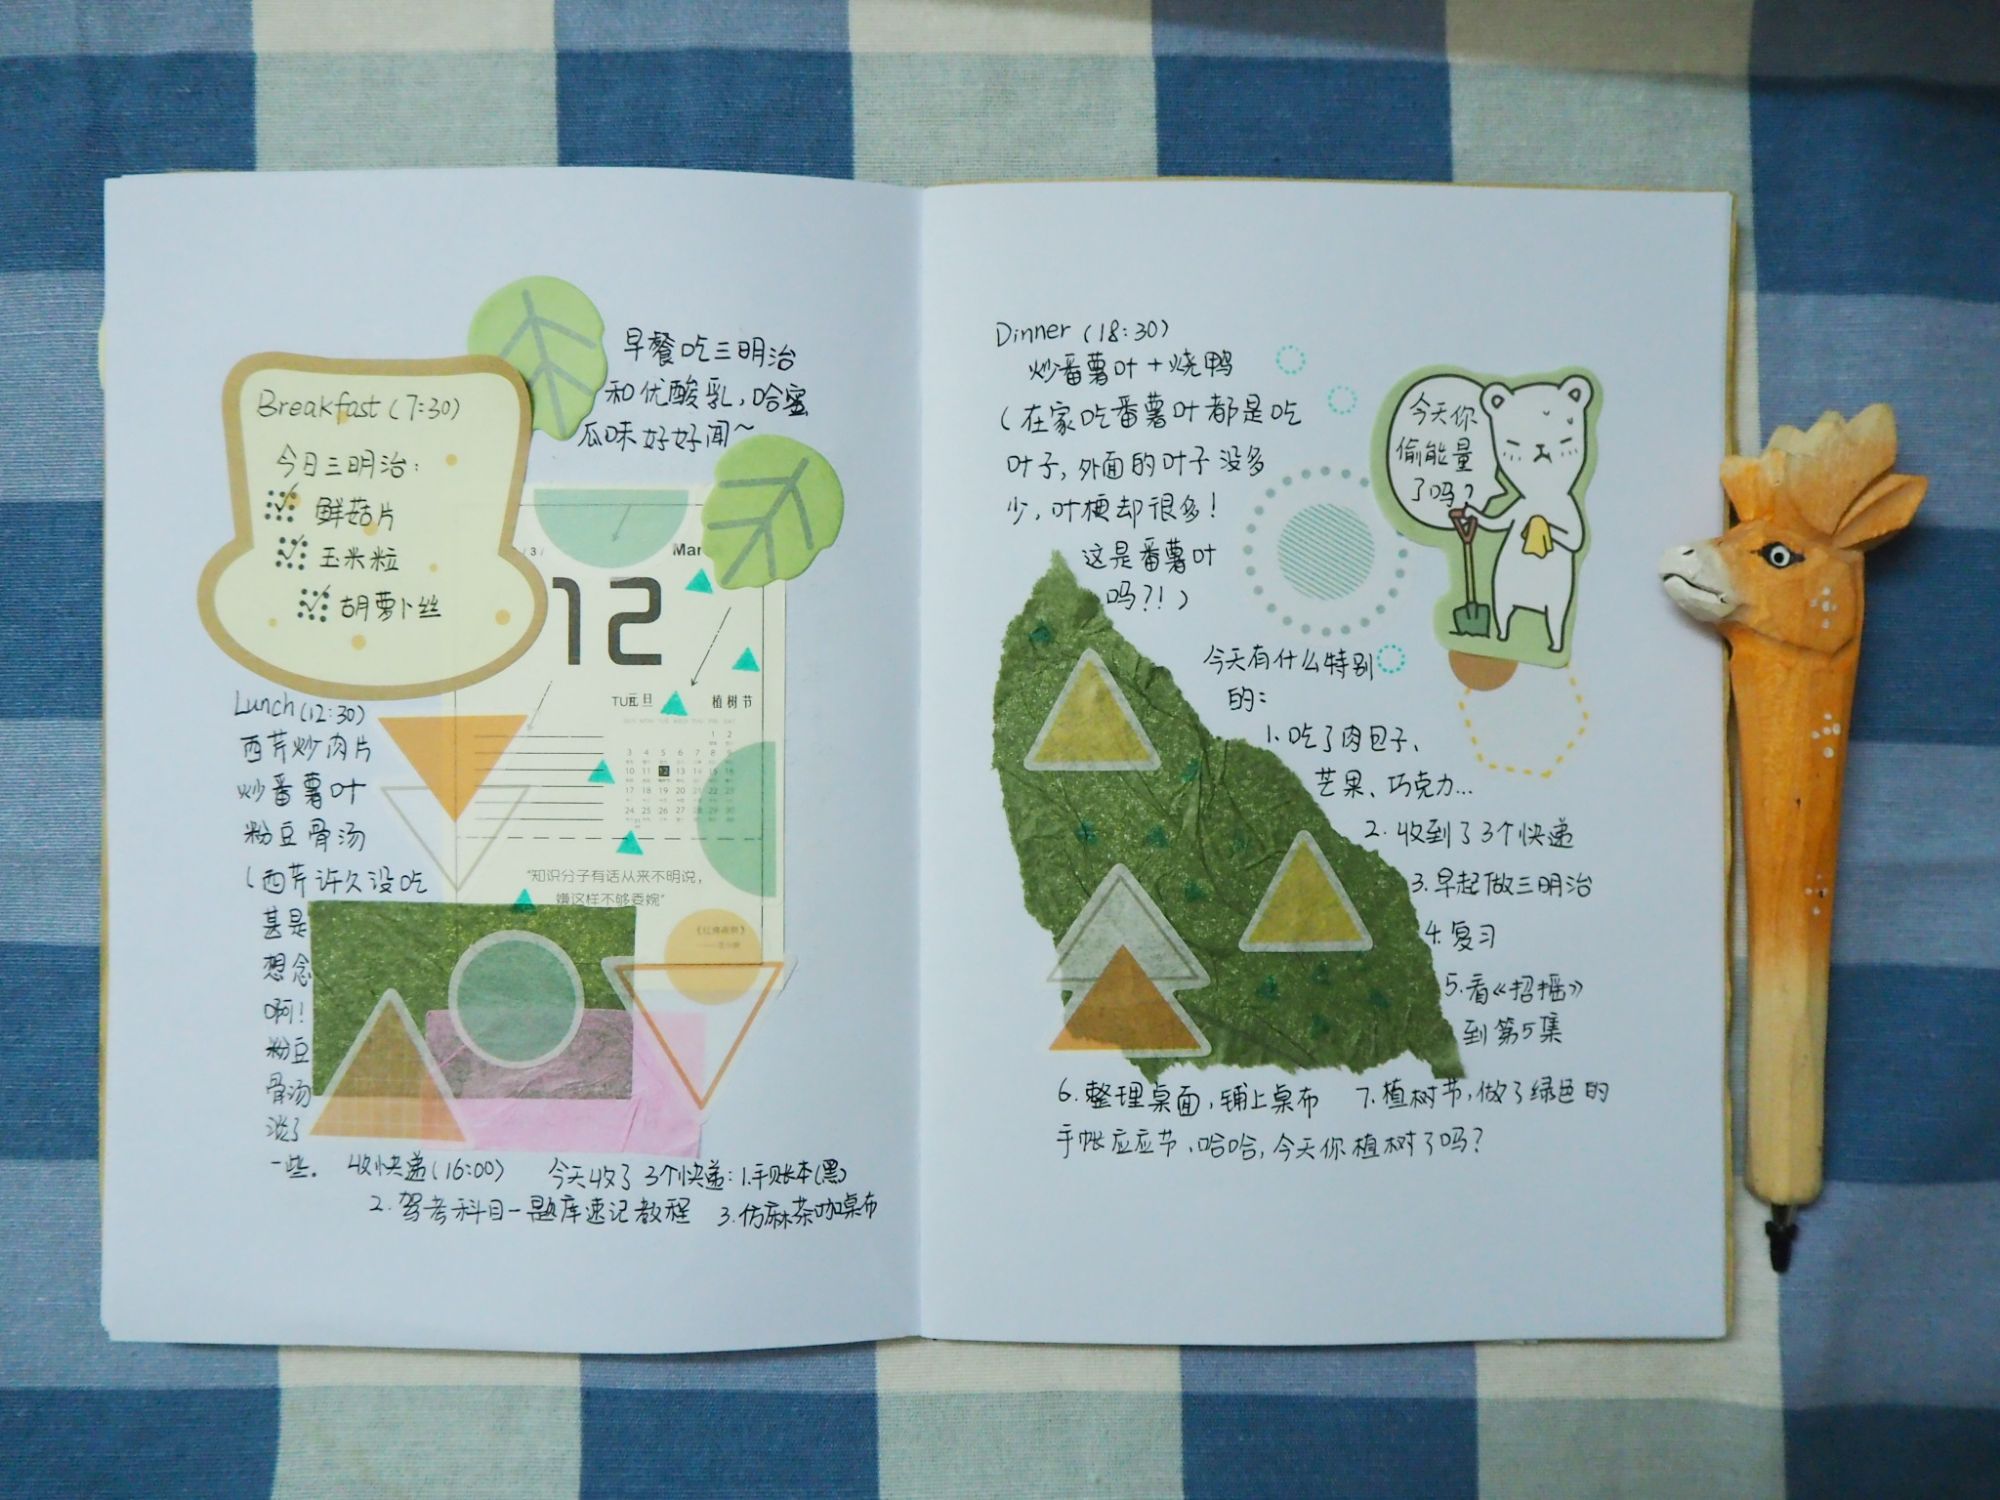 Breakfast (7:30)
今日三明治：
鲜菇片
玉米粒
胡萝卜丝
早餐吃三明治
和优酸乳，哈蜜
瓜味好好闻～
/3/
Mar
12
TUE
元旦
植树节
SUN MON TUE WED THU FRI SAT
1 2
3 4 5 6 7 8 9
10 11 12 13 14 15 16
17 18 19 20 21 22 23
24 25 26 27 28 29 30
31
“知识分子有话从来不明说，
嫌这样不够委婉”
Lunch (12:30)
西芹炒肉片
炒番薯叶
粉豆骨汤
（西芹许久没吃
甚是
想念
啊！
粉豆
骨汤
淡了
一些．
收快递（16:00）
今天收了3个快递：1.手账本（黑）
2.驾考科目一题库速记教程 3.仿麻茶咖桌布
Dinner (18:30)
炒番薯叶＋烧鸭
（在家吃番薯叶都是吃
叶子，外面的叶子没多
少，叶梗却很多！
这是番薯叶
吗？！）
今天你
偷能量
了吗？
今天有什么特别
的：
1.吃了肉包子、
芒果、巧克力…
2.收到了3个快递
3.早起做三明治
4.复习
5.看《招摇》
到第5集
6.整理桌面，铺上桌布 7.植树节，做了绿色的
手帐应应节，哈哈，今天你植树了吗？